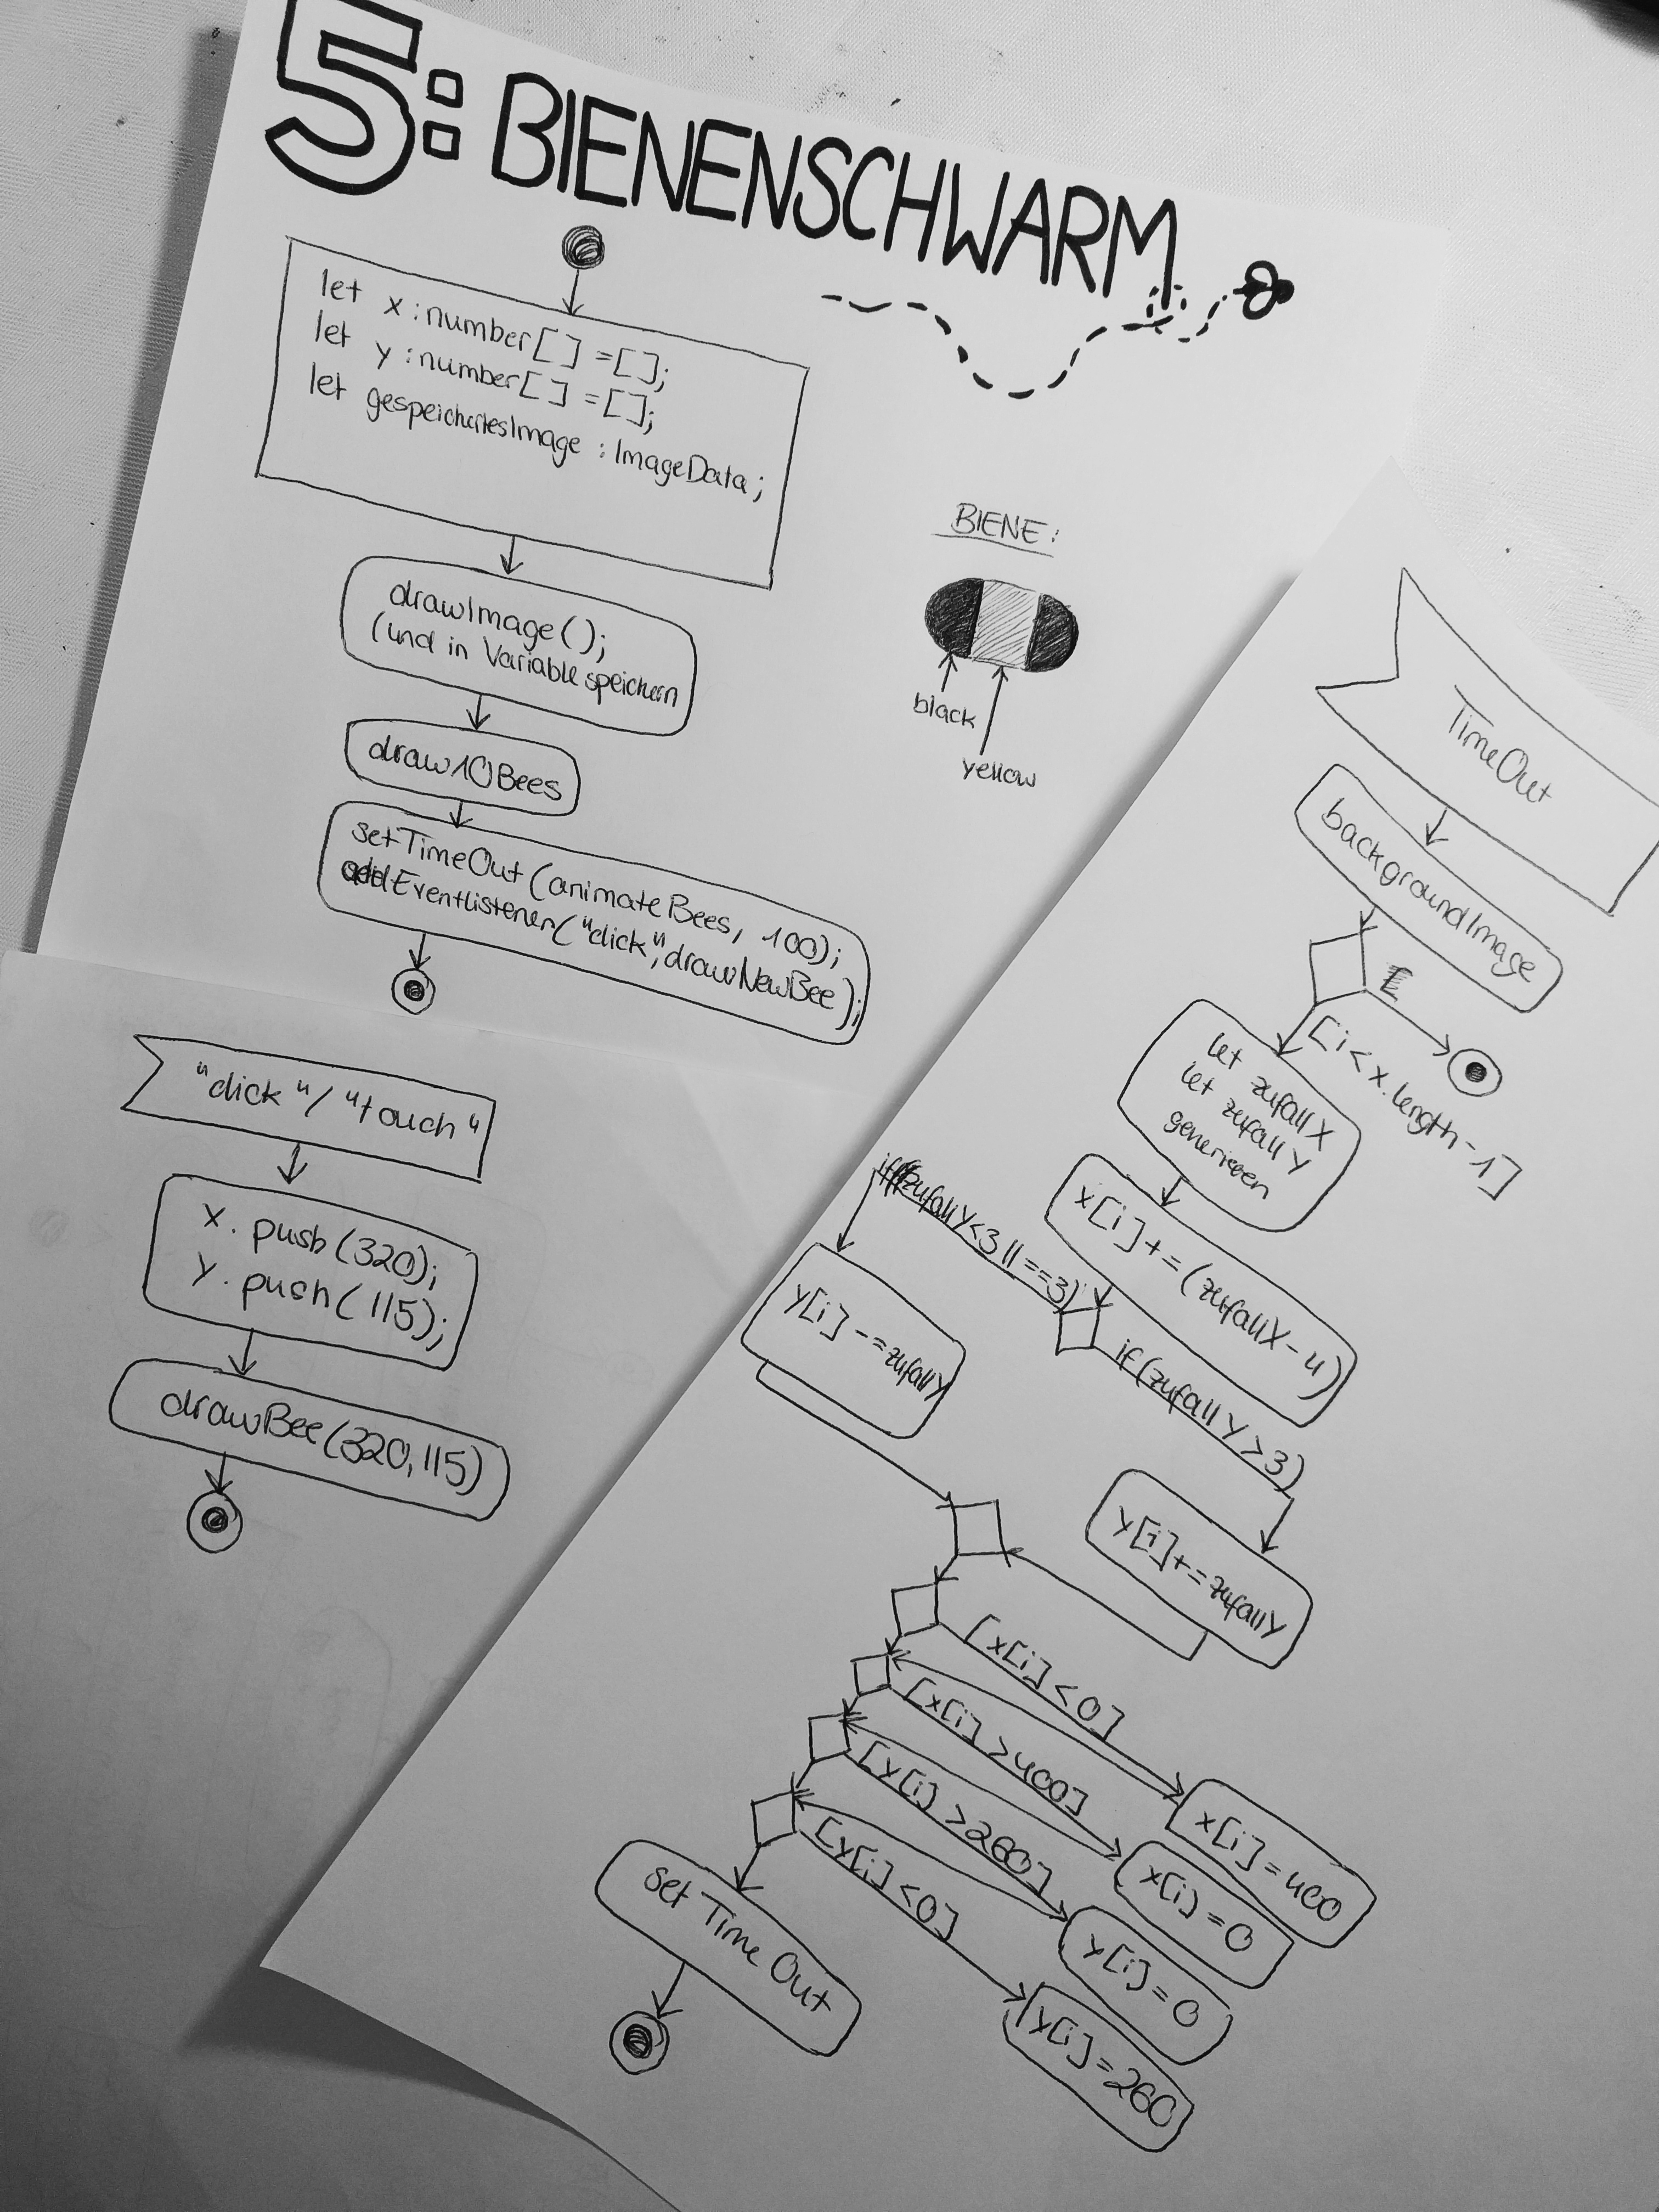 5: BIENENSCHWARM
let x : number[] = [];
let y : number[] = [];
let gespeichertesImage : ImageData;
drawImage();
(und in Variable speichern
draw10Bees
setTimeOut(animateBees, 100);
addEventlistener("click", drawNewBee);
BIENE:
black
yellow
"click" / "touch"
x.push(320);
y.push(115);
drawBee(320, 115)
TimeOut
backgroundImage
[i < x.length - 1]
let zufallX
let zufallY
generieren
x[i] += (zufallX - 4)
if(zufallY<3 || ==3)
if(zufallY > 3)
y[i] -= zufallY
y[i] += zufallY
[x[i] < 0]
[x[i] > 400]
[y[i] > 260]
[y[i] < 0]
x[i] = 400
x[i] = 0
y[i] = 0
y[i] = 260
set TimeOut